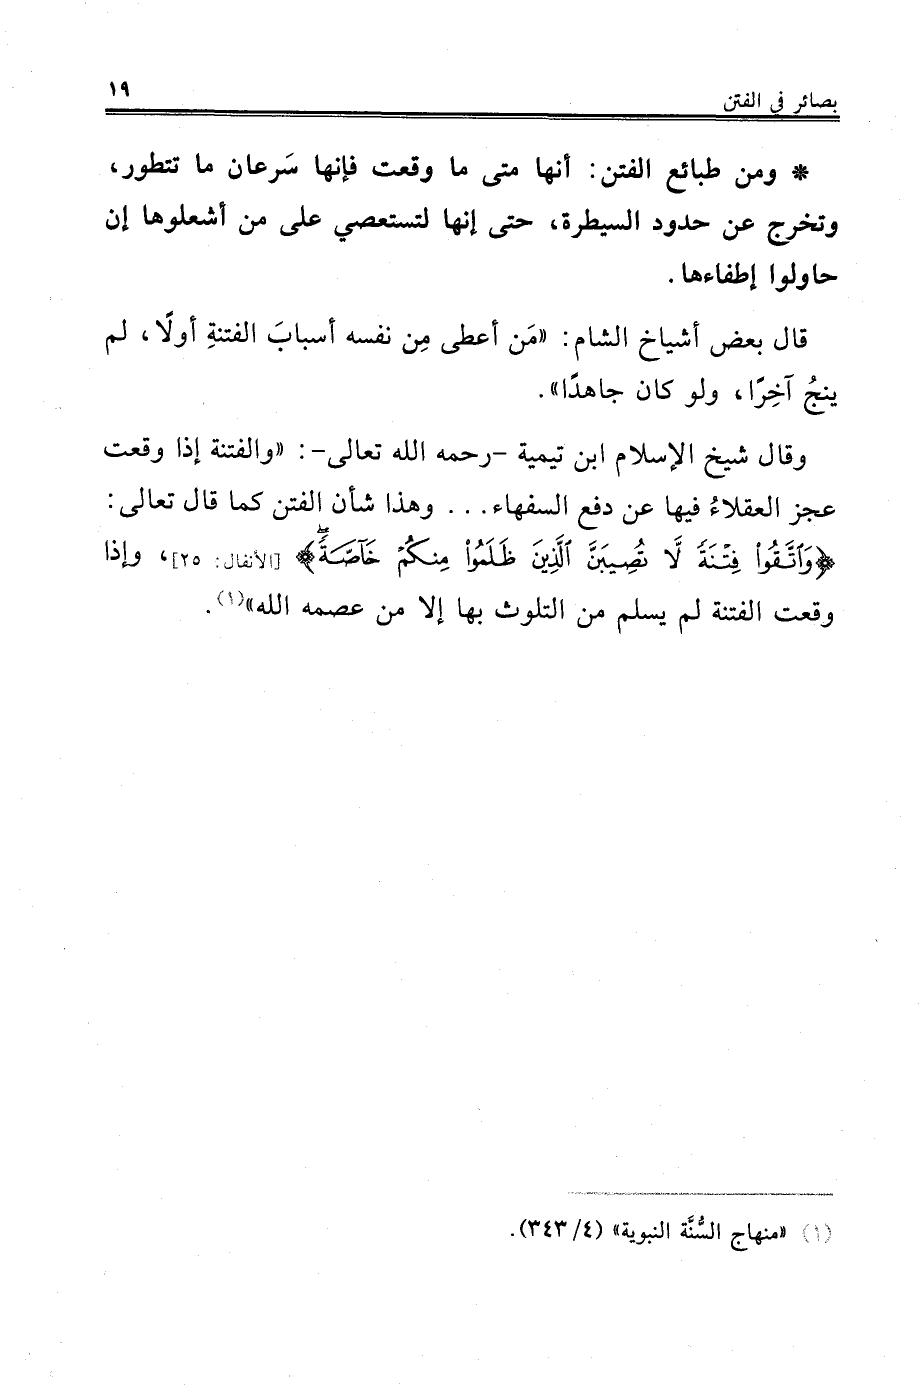 بصائر في الفتن ١٩
* ومن طبائع الفتن: أنها متى ما وقعت فإنها سَرعان ما تتطور،
وتخرج عن حدود السيطرة، حتى إنها لتستعصي على من أشعلوها إن
حاولوا إطفاءها.
قال بعض أشياخ الشام: «مَن أعطى مِن نفسه أسبابَ الفتنةِ أولًا، لم
ينجُ آخِرًا، ولو كان جاهدًا».
وقال شيخ الإسلام ابن تيمية -رحمه الله تعالى-: «والفتنة إذا وقعت
عجز العقلاءُ فيها عن دفع السفهاء... وهذا شأن الفتن كما قال تعالى:
﴿وَٱتَّقُوا۟ فِتْنَةً لَّا تُصِيبَنَّ ٱلَّذِينَ ظَلَمُوا۟ مِنكُمْ خَآصَّةً ۖ﴾ [الأنفال: ٢٥]، وإذا
وقعت الفتنة لم يسلم من التلوث بها إلا من عصمه الله»(١).
(١) «منهاج السُّنَّة النبوية» (٤/ ٣٤٣).